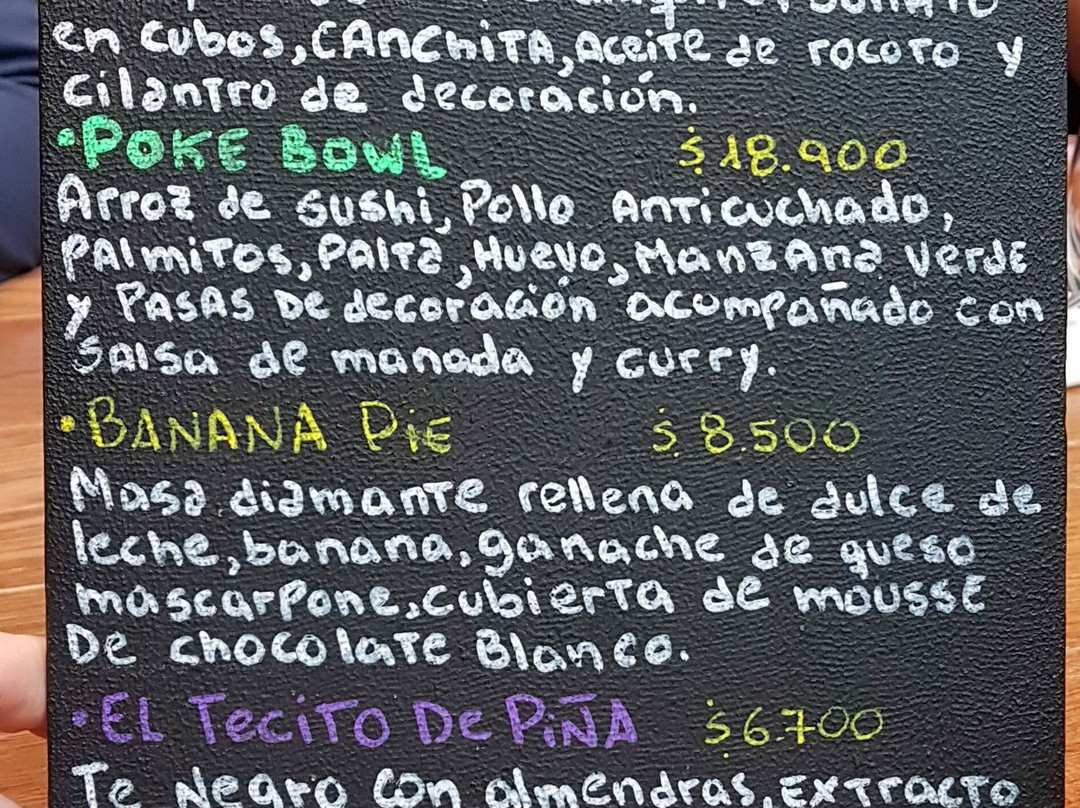 en cubos, canchita, aceite de rocoto y
cilantro de decoración.
• POKE BOWL $ 18.900
Arroz de sushi, Pollo Anticuchado,
Palmitos, Palta, Huevo, Manzana verde
y Pasas de decoración acompañado con
salsa de manada y curry.
• BANANA PiE $ 8.500
Masa diamante rellena de dulce de
leche, banana, ganache de queso
mascarpone, cubierta de mousse
De chocolate Blanco.
• EL TeciTO De PiÑA $ 6.700
Te Negro con almendras, extracto